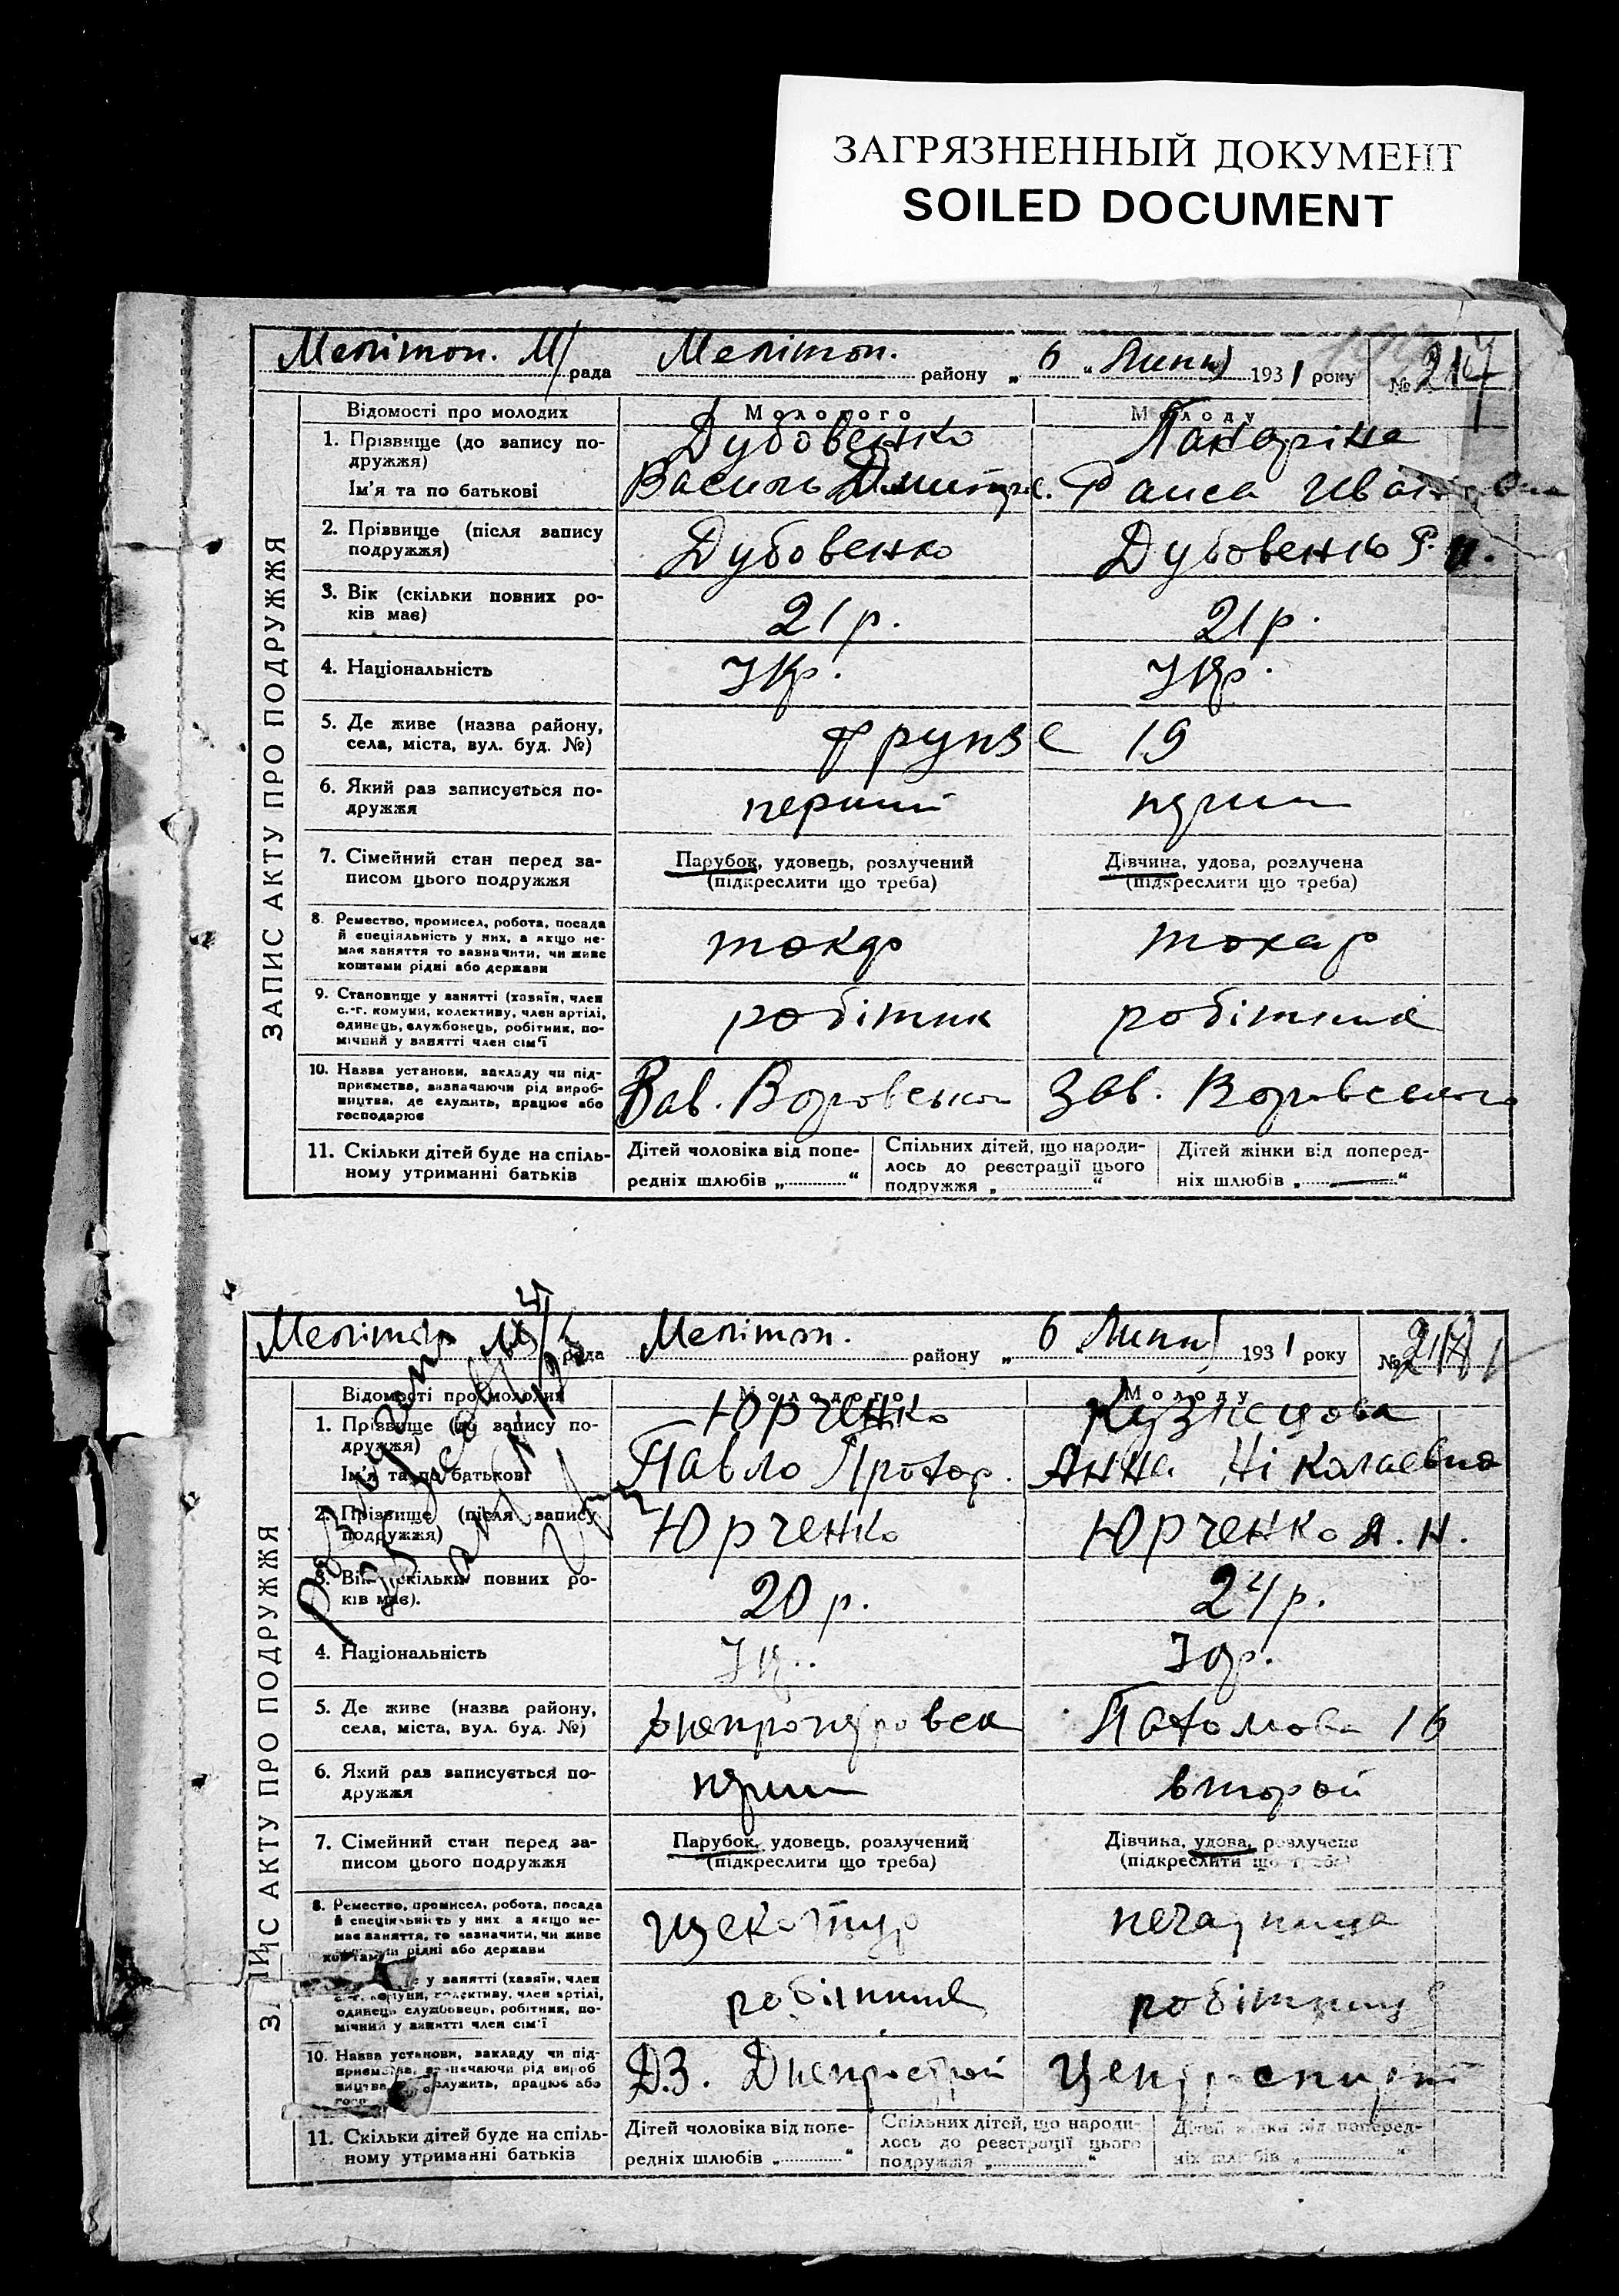 ЗАГРЯЗНЕННЫЙ ДОКУМЕНТ
SOILED DOCUMENT
ЗАПИС АКТУ ПРО ПОДРУЖЖЯ
Мелітоп. М/рада Мелітоп. району „ 6 “ Липня 1931 року №
Відомості про молодих Молодого Молоду
1. Прізвище (до запису подружжя) Дубовенко
Ім'я та по батькові Василь Дмитр. Раиса Ивановна
2. Прізвище (після запису подружжя) Дубовенко Дубовенко Р. И.
3. Вік (скільки повних років має) 21 р. 21 р.
4. Національність Укр. Укр.
5. Де живе (назва району, села, міста, вул. буд. №) Фрунзе 19
6. Який раз записується подружжя перший
7. Сімейний стан перед записом цього подружжя Парубок, удовець, розлучений (підкреслити що треба) Дівчина, удова, розлучена (підкреслити що треба)
8. Ремество, промисел, робота, посада й спеціяльність у них, а якщо немає заняття то зазначити, чи живе коштами рідні або держави токар токар
9. Становище у занятті (хазяїн, член с.-г. комуни, колективу, член артілі, одинець, службовець, робітник, помічний у занятті член сім'ї робітник робітник
10. Назва установи, закладу чи підприємства, визначаючи рід виробництва, де служить, працює або господарює Зав. Воровського Зав. Воровського
11. Скільки дітей буде на спільному утриманні батьків Дітей чоловіка від попередніх шлюбів „ “ Спільних дітей, що народилось до реєстрації цього подружжя „ “ Дітей жінки від попередніх шлюбів „ “
ЗАПИС АКТУ ПРО ПОДРУЖЖЯ
Мелітоп. М/рада Мелітоп. району „ 6 Липня 1931 року №
Відомості про молодих Молодого Молоду
1. Прізвище (до запису подружжя) Юрченко Кузнецова
Ім'я та по батькові Павло Прохор. Анна Ніколаевна
2. Прізвище (після запису подружжя) Юрченко Юрченко А. Н.
3. Вік (скільки повних років має). 20 р. 24 р.
4. Національність Укр. Укр.
5. Де живе (назва району, села, міста, вул. буд. №) 16
6. Який раз записується подружжя второй
7. Сімейний стан перед записом цього подружжя Парубок, удовець, розлучений (підкреслити що треба) Дівчина, удова, розлучена (підкреслити що треба)
8. Ремество, промисел, робота, посада й спеціяльність у них а якщо немає заняття, то зазначити, чи живе коштами рідні або держави щекотур
у занятті (хазяїн, член комуни, колективу, член артілі, одинець службовець, робітник, помічний у занятті член сім'ї робітник робітниця
10. Назва установи, закладу чи підприємства, визначаючи рід виробництва, служить, працює або Д.З. Днепрострой
11. Скільки дітей буде на спільному утриманні батьків Дітей чоловіка від попередніх шлюбів „ “ Спільних дітей, що народилось до реєстрації цього подружжя „ “ Дітей жінки від попередніх шлюбів „ “